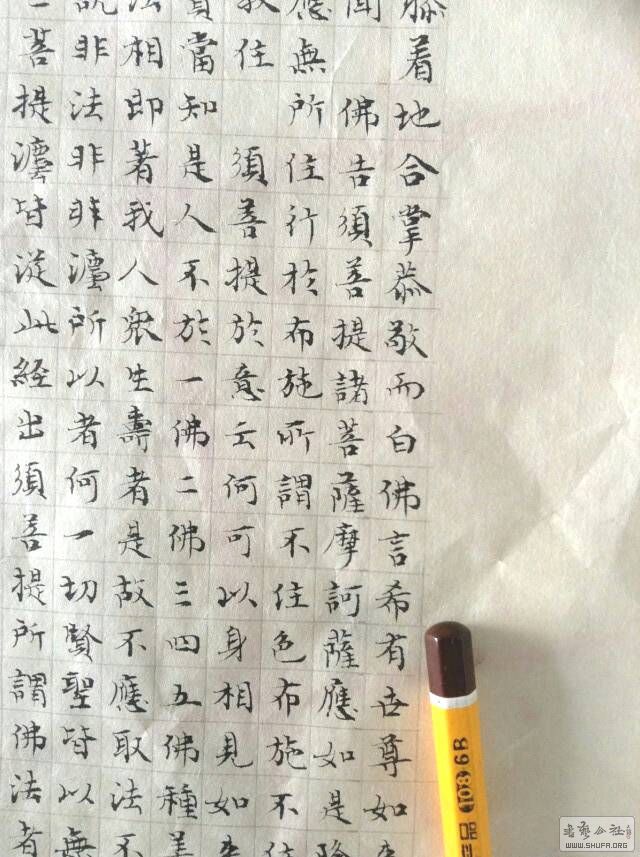 膝着地合掌恭敬而白佛言希有世尊如
聞 佛告須菩提諸菩薩摩訶薩應如是降
應無所住行於布施所謂不住色布施不住
教住 須菩提於意云何可以身相見如來
實當知是人不於一佛二佛三四五佛種善
法相即著我人衆生壽者是故不應取法不
說非法非非灋所以者何一切賢聖皆以無
菩提灋皆從此經出須菩提所謂佛法者
1036B
書藝公社
WWW.SHUFA.ORG